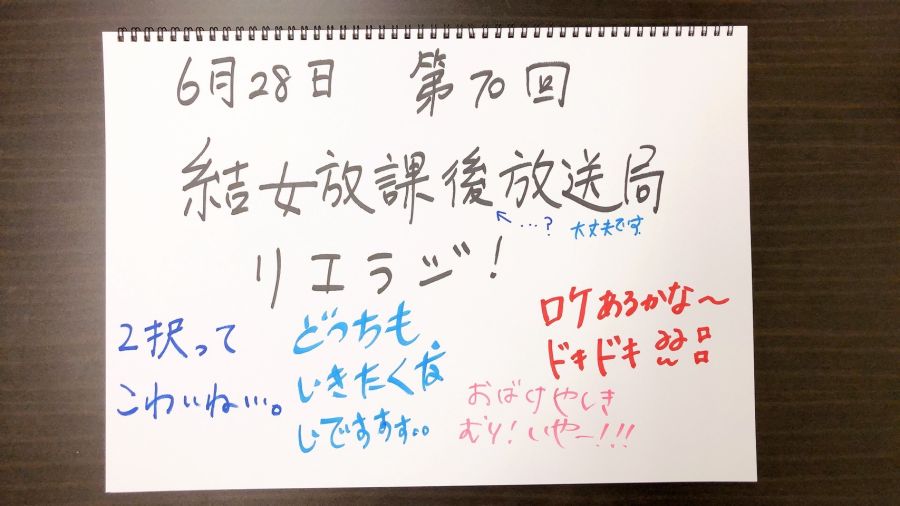 6月28日 第70回
結女放課後放送局
←…?
大丈夫です
リエラジ!
2択って
こわいね…。
どっちも
いきたくな
いですます。。
ロケあるかな〜
ドキドキ
おばけやしき
むり!いやー!!!